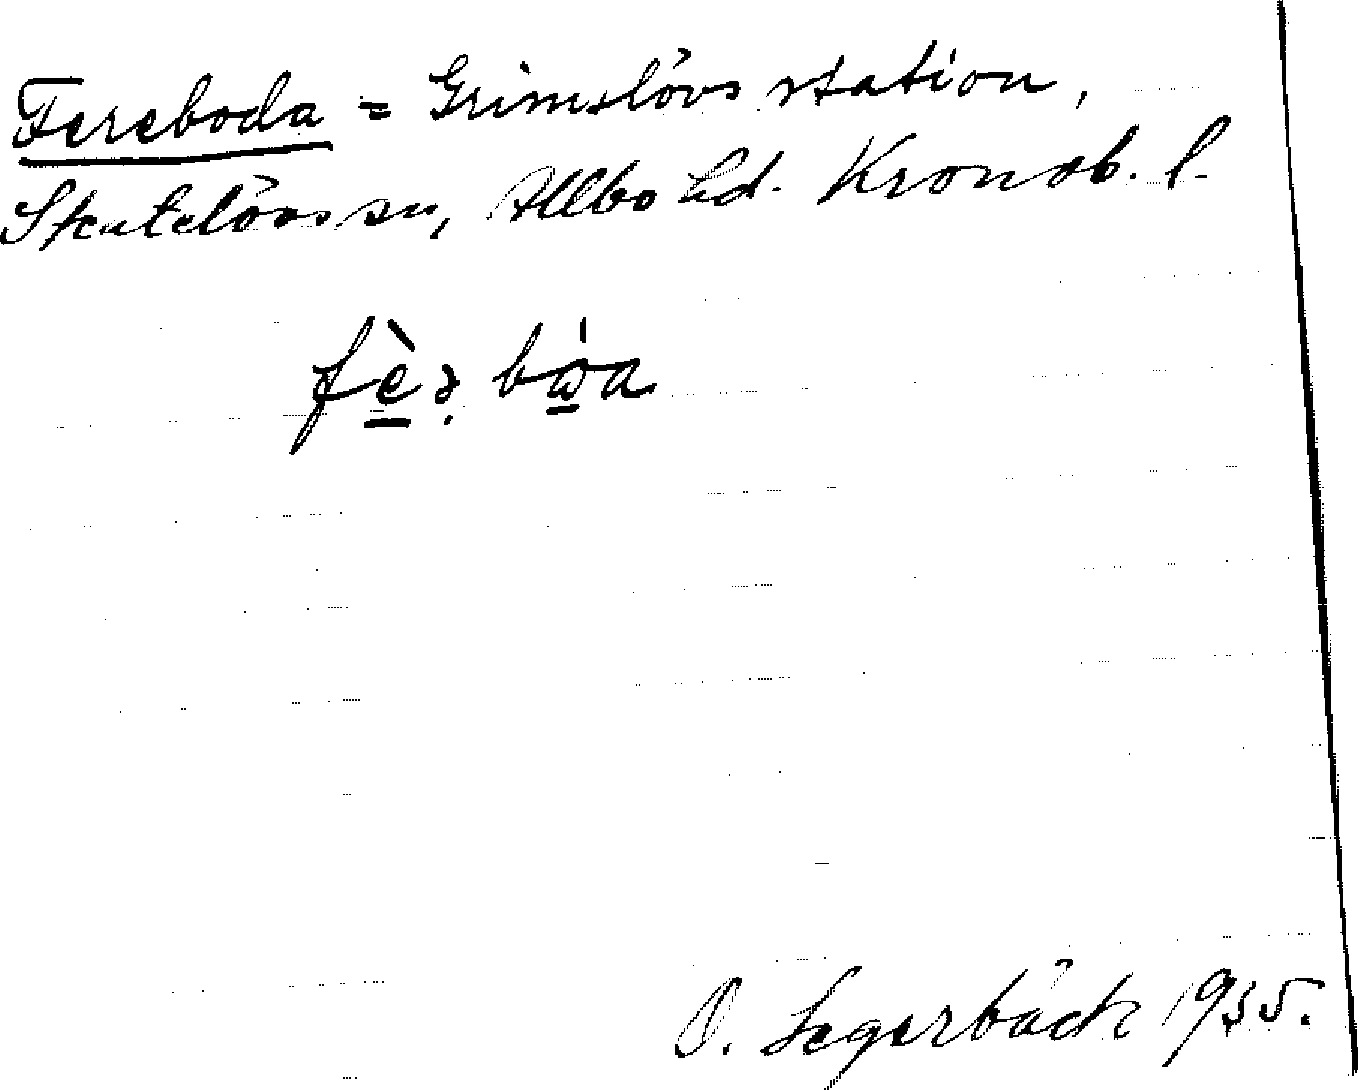 Fereboda = Grimslövs station,
Skatelövs sn, Allbo hd. Kronob. l.
fèə̣ bω̇a
O. Segerbäck 1935.